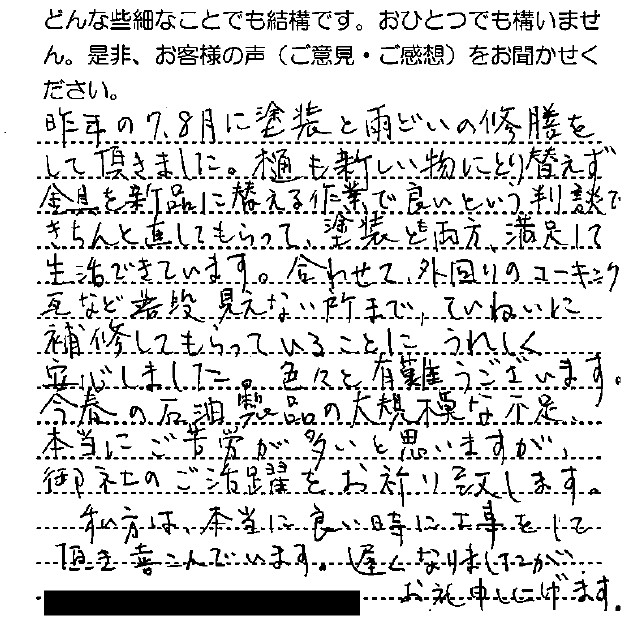 どんな些細なことでも結構です。おひとつでも構いませ
ん。是非、お客様の声（ご意見・ご感想）をお聞かせく
ださい。
昨年の7、8月に塗装と雨どいの修膳を
して頂きました。樋も新しい物にとり替えず
金具を新品に替える作業で良いという判談で
きちんと直してもらって、塗装とも両方、満足して
生活できています。合わせて、外回りのコーキング
瓦など普段見えない所まで、ていねいに
補修してもらっていることに うれしく
安心しました。色々と有難うございます。
今春の石油製品の大規模な不足、
本当にご苦労が多いと思いますが、
御社のご活躍をお祈り致します。
私方は、本当に良い時に工事をして
頂き喜こんでいます。遅くなりましたが
お礼申し上げます。